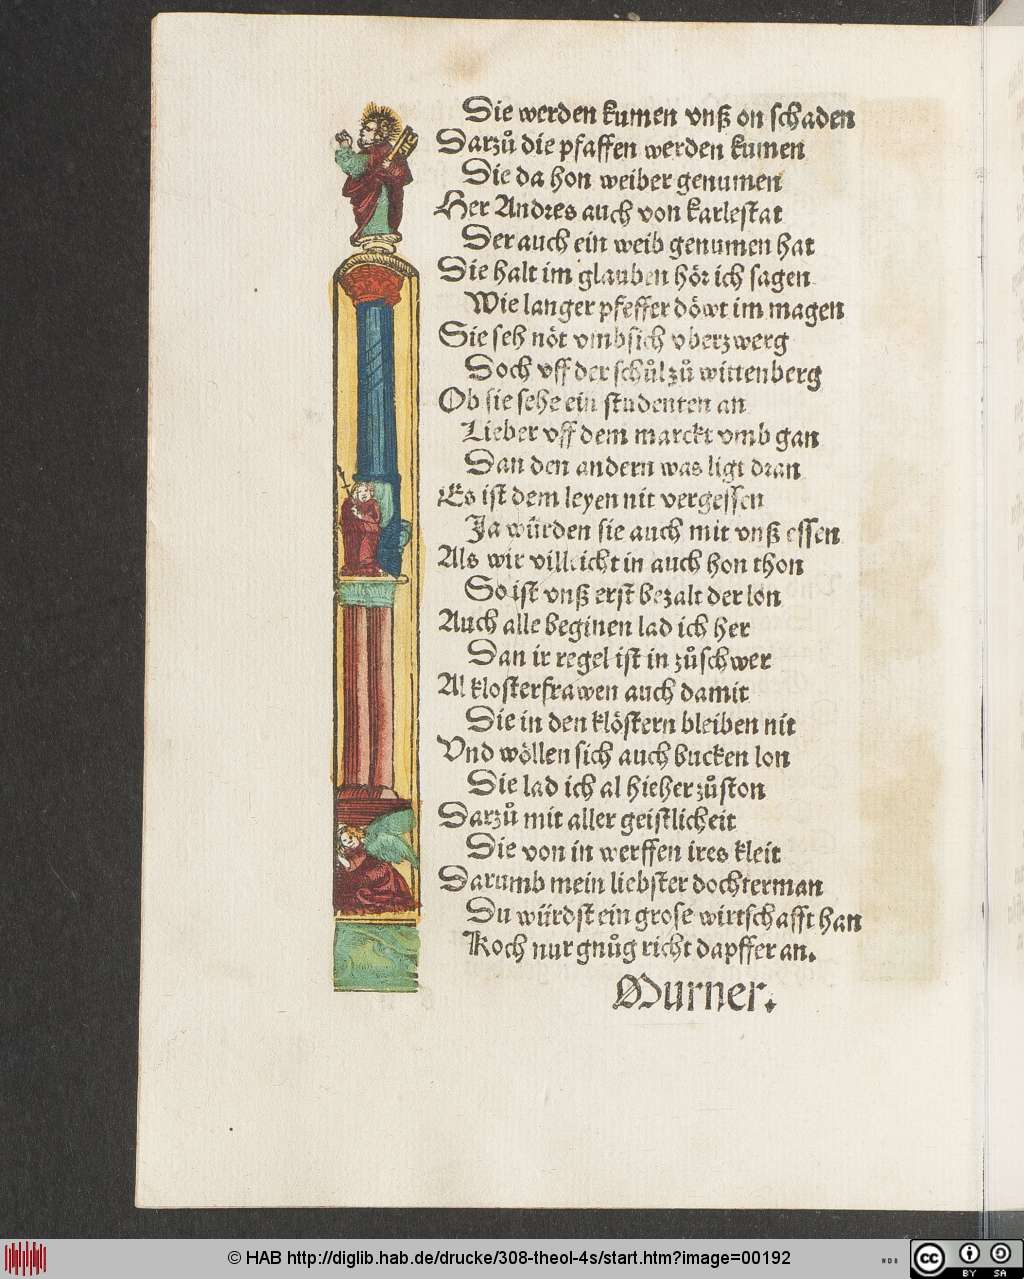 Die werden kumen vnß on schaden
Darzů die pfaffen werden kumen
Die da hon weiber genumen
Her Andres auch von karlestat
Der auch ein weib genumen hat
Die halt im glauben hör ich sagen
Wie langer pfeffer döwt im magen
Sie seh nöt vmbsich vberzwerg
Doch vff der schůl zů wittenberg
Ob sie sehe ein studenten an
Lieber vff dem marckt vmb gan
Dan den andern was ligt dran
Es ist dem leyen nit vergessen
Ja würden sie auch mit vnß essen
Als wir villeicht in auch hon thon
So ist vnß erst bezalt der lon
Auch alle beginen lad ich her
Dan ir regel ist in zůschwer
Al klosterfrawen auch damit
Die in den klöstern bleiben nit
Vnd wöllen sich auch bucken lon
Die lad ich al hieher zůston
Darzů mit aller geistlicheit
Die von in werffen ires kleit
Darumb mein liebster dochterman
Du würdst ein grose wirtschafft han
Koch nur gnůg richt dapffer an.
Murner.
© HAB http://diglib.hab.de/drucke/308-theol-4s/start.htm?image=00192
WDB
cc BY SA